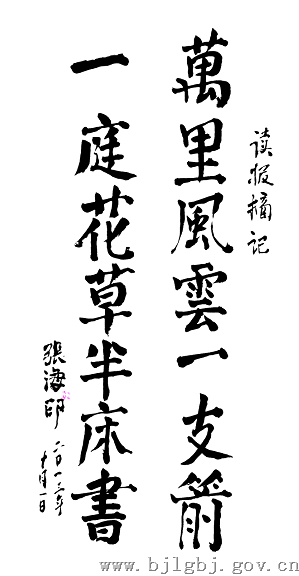 读报摘记
萬里風雲一支箭
一庭花草半床書
張海印
二〇一三年
十月一日
www.bjlgbj.gov.cn